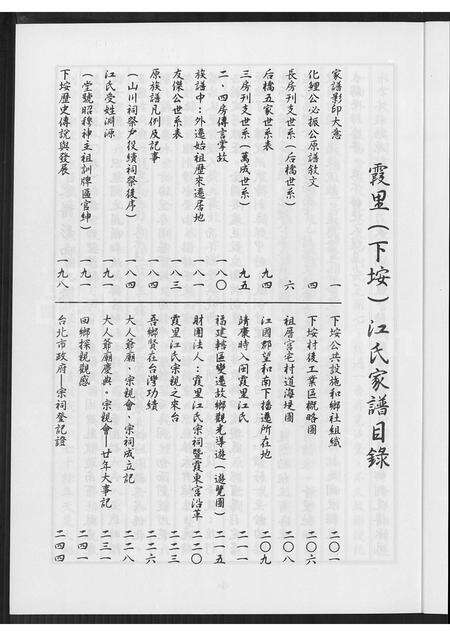 霞里（下垵）江氏家譜目錄
家譜影印大意 一
化鯉公必振公原譜敘文 四
長房刊支世系（后橋世系） 六
后橋五家世系表 九四
三房刊支世系（萬成世系） 九五
二．四房傳言掌故 一八〇
族譜中：外遷始祖歷來遷居地 一八一
友傑公世系表 一八三
原族譜凡例及記事 一八四
（山川祠祭戶役續祠祭後序） 一八四
江氏受姓淵源 一九一
（堂號昭穆神主祖訓牌匾官紳） 一九一
下垵歷史傳說與發展 一九八
下垵公共設施和鄉社組織 二〇一
下垵村後工業區概略圖 二〇六
祖厝官宅村道海堘圖 二〇八
江國郡望和南下播遷所在地 二〇九
靖康時入閩霞里江氏 二一一
福建轄區變遷故鄉觀光導遊（遊覽圖） 二一五
財團法人：霞里江氏宗祠暨霞東宮沿革 二二〇
霞里江氏宗親之來台 二二三
吾鄉賢在台灣功績 二二六
大人爺廟．宗親會．宗祠成立記 二二八
大人爺廟慶典．宗親會—廿年大事記 二三一
回鄉探親觀感 二四一
台北市政府—宗祠登記證 二四四